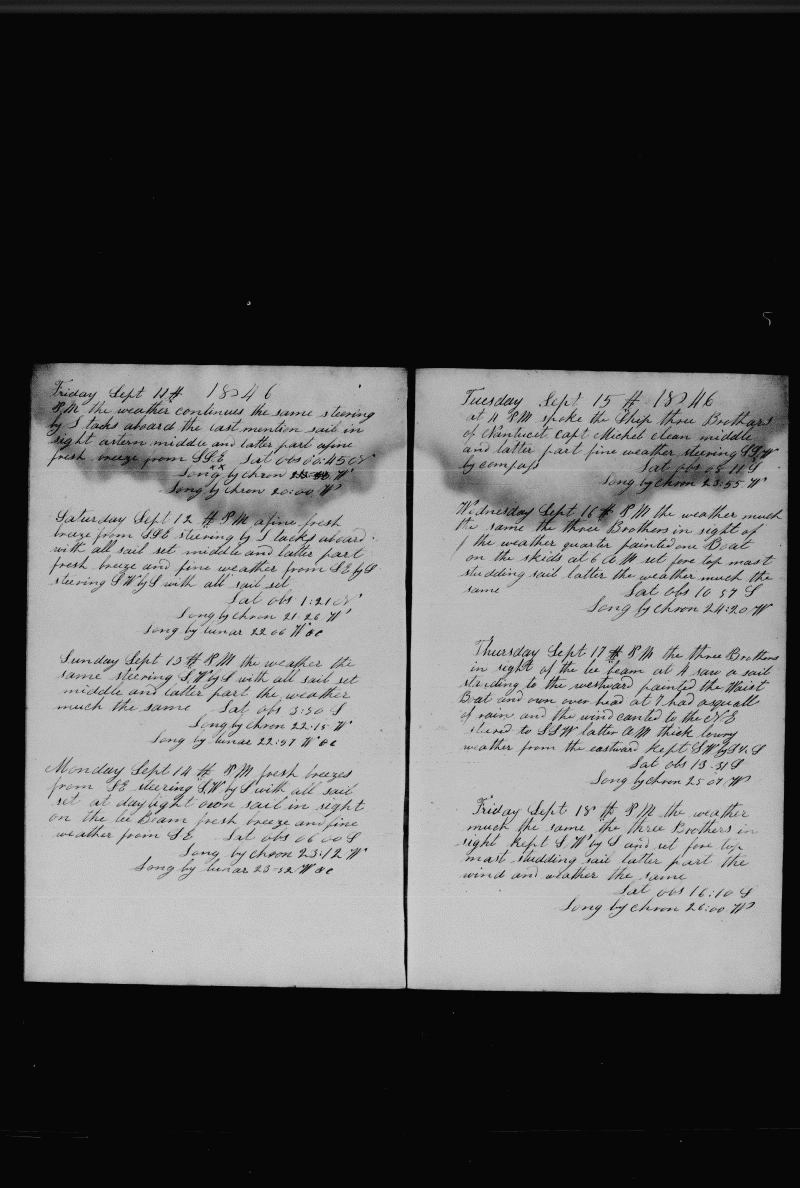 Friday Sept 11th 1846
P.M the weather continues the same steering
by S tacks aboard the last mention sail in
sight astern middle and latter part a fine
fresh breeze from SSE Lat obs 00:45 N
Long by chron W
Long by chron 20:00 W
Saturday Sept 12th P.M a fine fresh
breeze from SSE steering by S tacks aboard
with all sail set middle and latter part
fresh breeze and fine weather from SE by S
steering SW by S with all sail set
Lat obs 1:21 N
Long by chron 21 26 W
Long by lunar 22 06 W
Sunday Sept 13th P.M the weather the
same steering SW by S with all sail set
middle and latter part the weather
much the same Lat obs 3:30 S
Long by chron 22:15 W
Long by lunar 22:57 W
Monday Sept 14th P.M fresh breezes
from SE steering SW by S with all sail
set at daylight down sail in sight
on the lee Beam fresh breeze and fine
weather from SE Lat obs 06 00 S
Long by chron 23:12 W
Long by lunar 23-52 W
Tuesday Sept 15th 1846
at 4 P.M spoke the Ship three Brothers
of Nantucit Capt Michel clean middle
and latter part fine weather steering SSW
by compass Lat obs 08 11 S
Long by chron 23:55 W
Wednesday Sept 16th P.M the weather much
the same the three Brothers in sight of
the weather quarter painted one Boat
on the skids at 6 A M set fore top mast
studding sail latter the weather much the
same Lat obs 10 57 S
Long by chron 24:20 W
Thursday Sept 17th P.M the three Brothers
in sight of the lee beam at 4 saw a sail
standing to the westward painted the Waist
Boat and over head at 7 had a squall
of rain and the wind canted to the NE
steered to SSW latter A M thick lowry
weather from the eastward kept SW by S
Lat obs 13:31 S
Long by chron 25:07 W
Friday Sept 18th P.M the weather
much the same the three Brothers in
sight kept SW by S and set fore top
mast studding sail latter part the
wind and weather the same
Lat obs 16:10 S
Long by chron 26:00 W